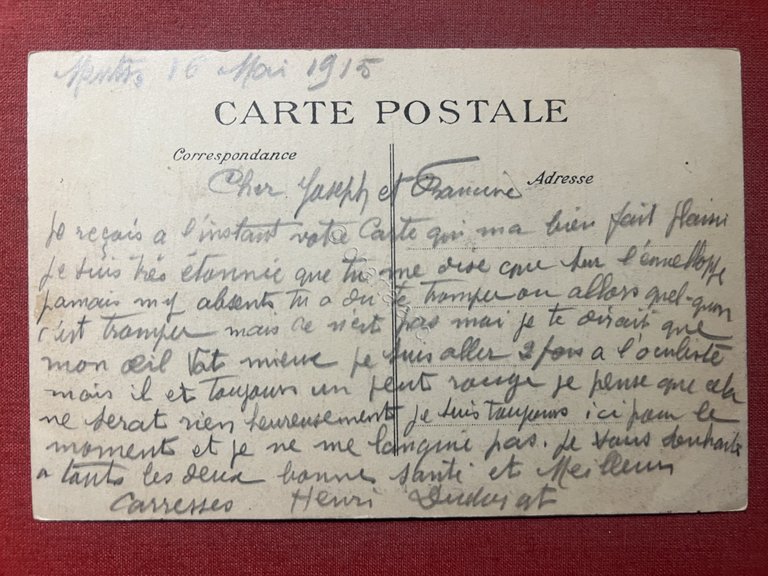 16 Mai 1915
CARTE POSTALE
Correspondance
Adresse
Cher Joseph et
Je reçois a l'instant votre Carte qui ma bien fait plaisir
Je suis très étonnée que tu me dise que sur l'enveloppe
jamais m'y absents tu a du te tromper ou allors quel-quun
c'est tromper mais ce n'est pas moi je te dirait que
mon œil Vat mieux je suis aller 2 fois a l'oculiste
mais il et toujours un peut rouge je pense que cela
ne serat rien heureusement je suis toujours ici pour le
moment et je ne me languie pas. je vous souhaite
a touts les deux bonne santé et Meilleurs
Carresses Henri